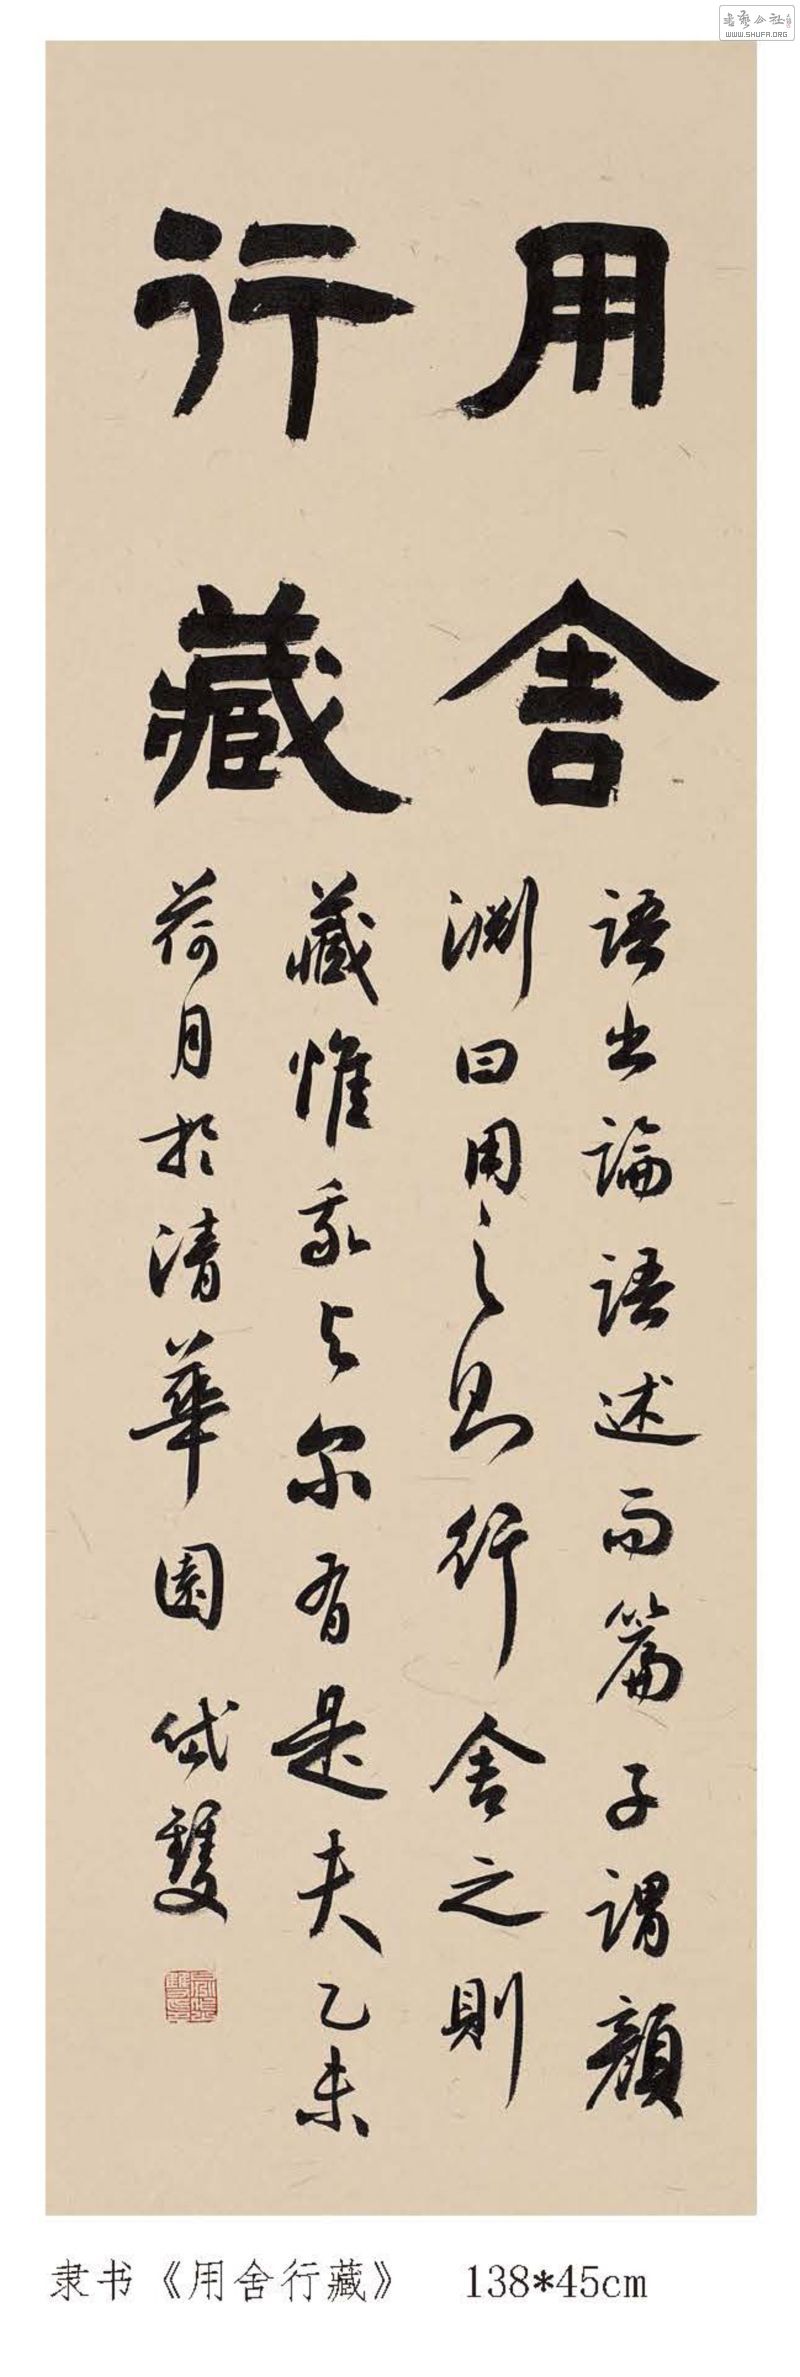 書藝公社
WWW.SHUFA.ORG
用舍
行藏
语出論语述而篇子谓顔
渊曰用之则行舍之則
藏惟我与尔有是夫乙未
荷月於清華園岱雙
隶书《用舍行藏》 138*45cm